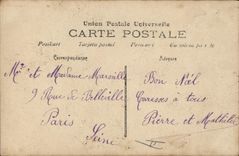 Union Postale Universelle
CARTE POSTALE
Postkart Tarjeta postal
Correspondance
Adresse
Mr et Madame Marville
9 Rue de Belleville
Paris
Seine
Bon Noël
Caresses à tous
Pierre et Mathilde